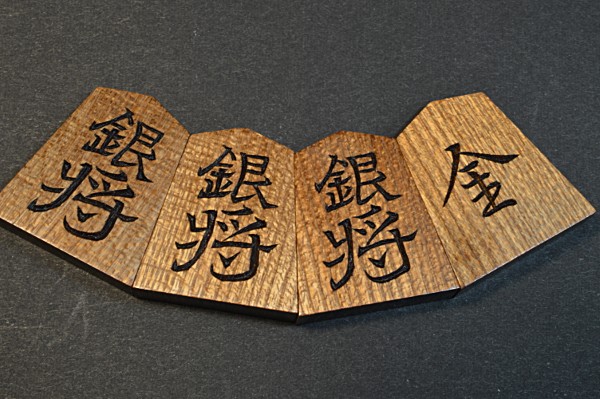 銀将
銀将
銀将
全